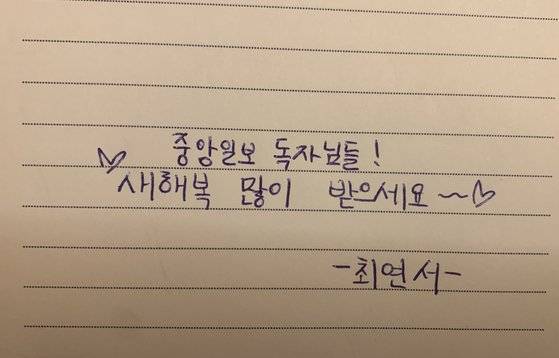 중앙일보 독자님들!
♡ 새해복 많이 받으세요~♡
-최연서-